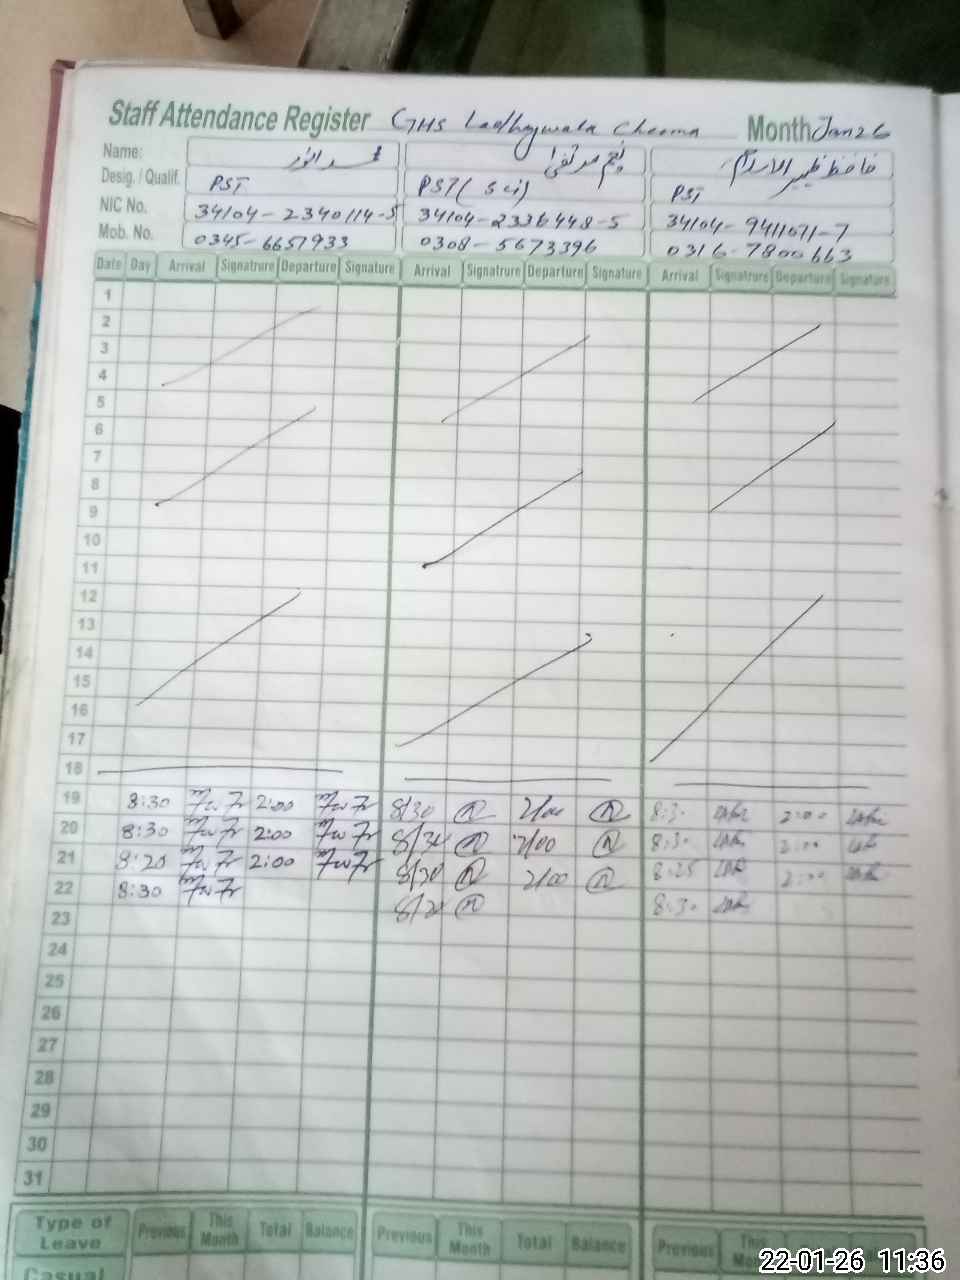 Staff Attendance Register GHS Ladhaywala Cheema Month Jan 26
Name: حافظ ظہیر الاسلام
Desig. / Qualif. PST PST (Sci) PST
NIC No. 34104-2340114-5 34104-2336448-5 34104-9411071-7
Mob. No. 0345-6651933 0308-5673396 0316-7800663
Date Day Arrival Signatrure Departure Signature Arrival Signatrure Departure Signature Arrival Signatrure Departure Signature
1
2
3
4
5
6
7
8
9
10
11
12
13
14
15
16
17
18
19 8:30 2:00 8/30 2/00 8:30 2:00
20 8:30 2:00 8/30 2/00 8:30 2:00
21 8:20 2:00 8/30 2/00 8:25 2:00
22 8:30 8:30
23
24
25
26
27
28
29
30
31
Type of Leave Previous This Month Total Balance Previous This Month Total Balance Previous This
Casual
22-01-26 11:36